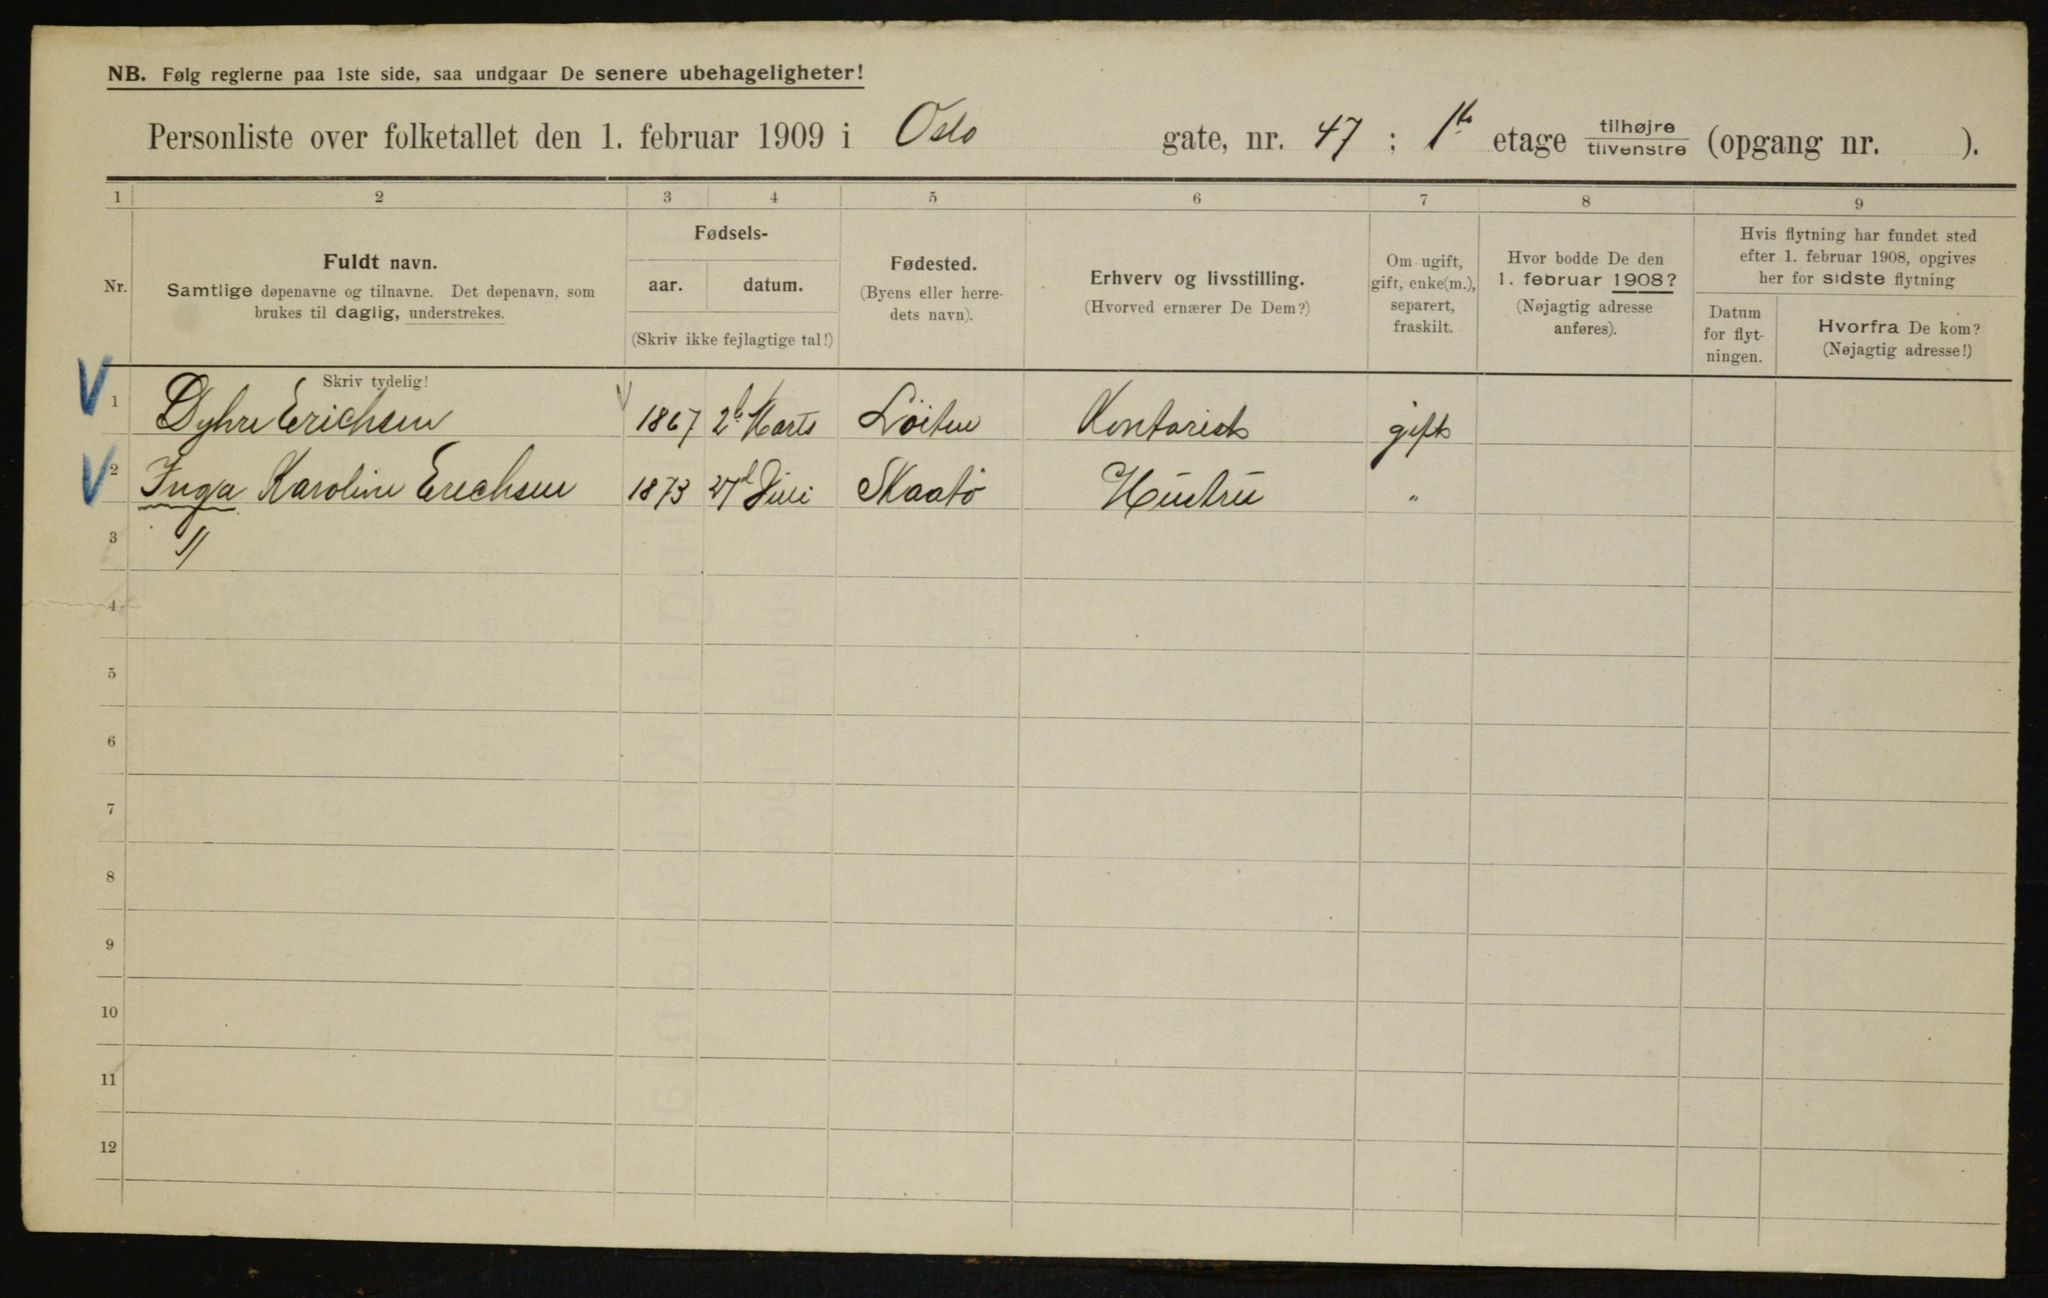 NB. Følg reglerne paa 1ste side, saa undgaar De senere ubehageligheter!
Personliste over folketallet den 1. februar 1909 i Oslo gate, nr. 47 ; 1ste etage tilhøjre tilvenstre (opgang nr. ).
1 2 3 4 5 6 7 8 9
Nr.
Fuldt navn.
Samtlige døpenavne og tilnavne. Det døpenavn, som
brukes til daglig, understrekes.
Fødsels-
aar. datum.
(Skriv ikke fejlagtige tal!)
Fødested.
(Byens eller herre-
dets navn).
Erhverv og livsstilling.
(Hvorved ernærer De Dem?)
Om ugift,
gift, enke(m.),
separert,
fraskilt.
Hvor bodde De den
1. februar 1908?
(Nøjagtig adresse
anføres).
Hvis flytning har fundet sted
efter 1. februar 1908, opgives
her for sidste flytning
Datum
for flyt-
ningen.
Hvorfra De kom?
(Nøjagtig adresse!)
Skriv tydelig!
1 Dyhre Erichsen 1867 Marts Löiten Kontorist gift
2 Inga Karoline Erichsen 1873 27d Juli Skaatö Hustru "
3
4
5
6
7
8
9
10
11
12